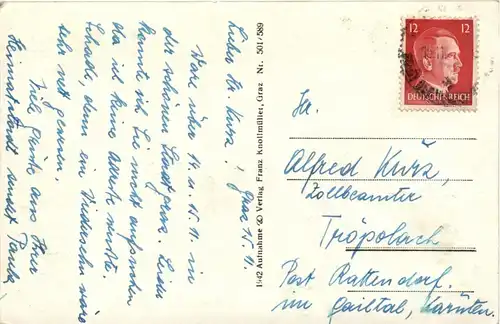 Graz 15.11.
Lieber Hr. Kurz!
War vom 14. u. 15. 11. in
der schönen Stadt Graz. Leider
konnte ich Sie nicht aufsuchen
da ich keine Adresse wusste.
Schade, denn ein Wiedersehn wäre
sehr nett gewesen.
Viele Grüße aus Ihrer
Heimatstadt sendet Paula
1942 Aufnahme Verlag Franz Knollmüller, Graz Nr. 501/589
12 12
DEUTSCHES REICH
Hr.
Alfred Kurz,
Zollbeamter
Tröpolach
Post Rattendorf.
im Gailtal, Kärnten.